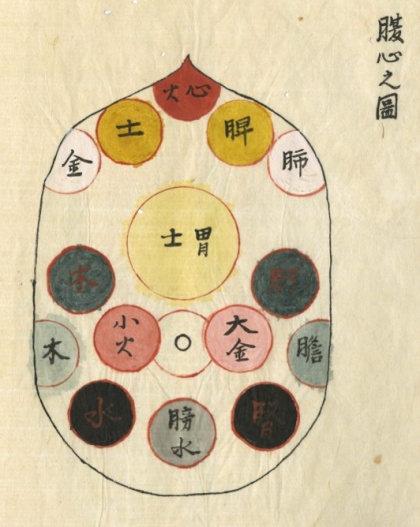 腹心之圖
心火
脾
士
肺
金
胃
士
木
大金
小火
膽
木
腎
水
膀水